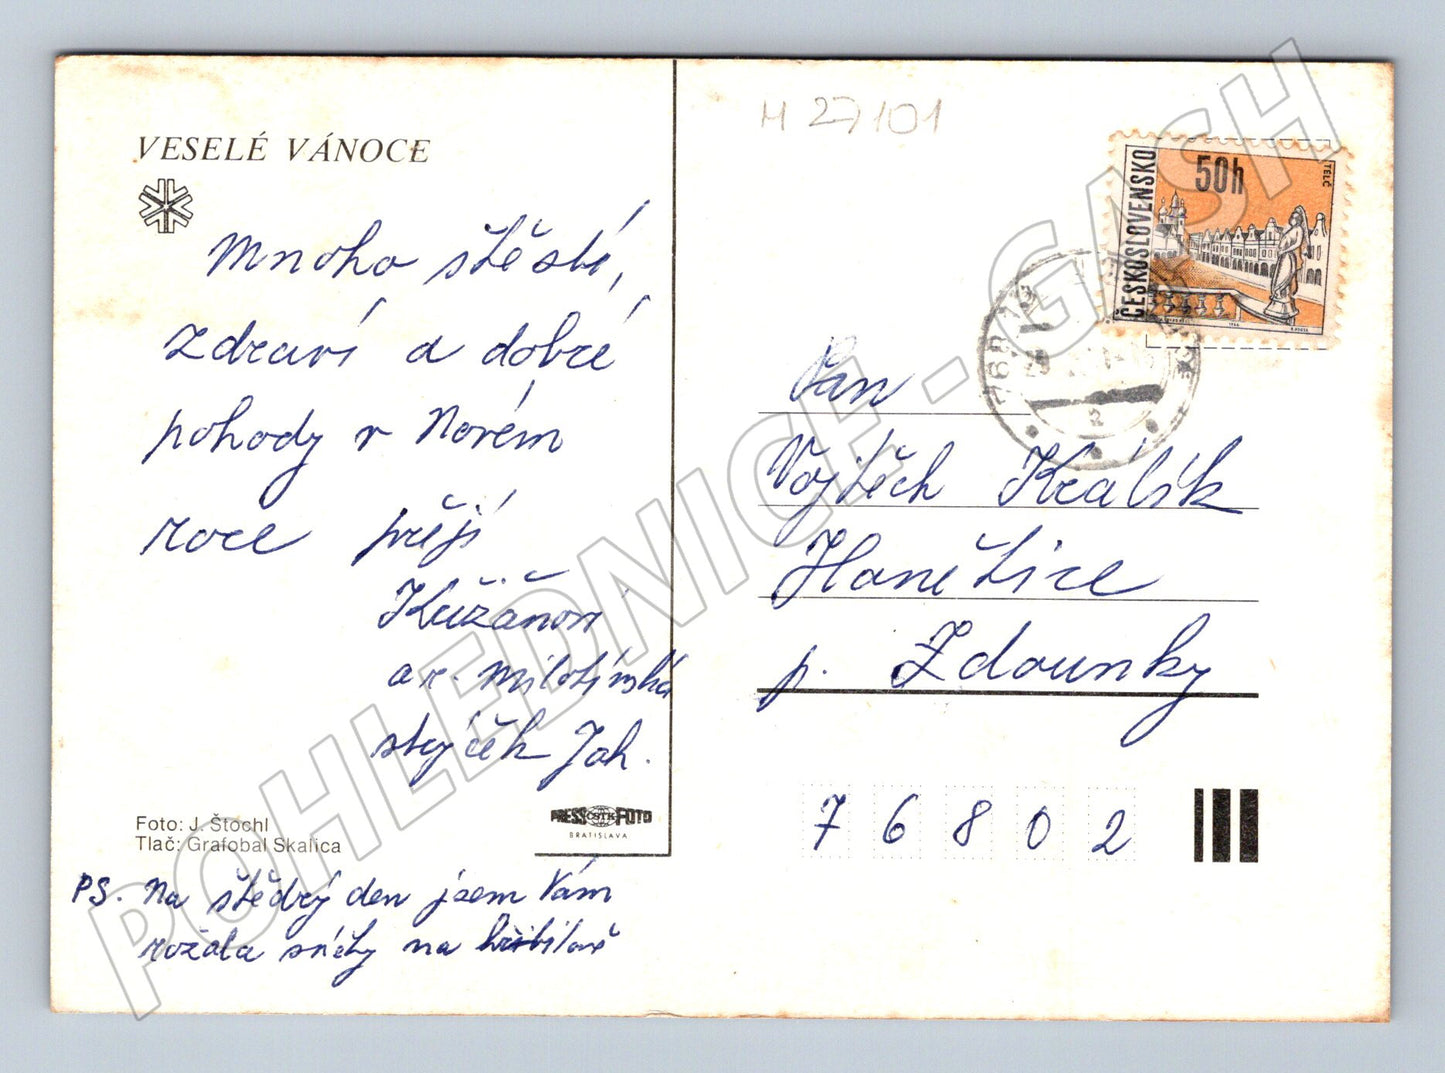 VESELÉ VÁNOCE
Mnoho štěstí,
zdraví a dobré
pohody v Novém
roce přejí
Křižanovi
a r. Milotínská
strýček Joh.
Foto: J. Štochl
Tlač: Grafobal Skalica
PRESS ČSTK FOTO
BRATISLAVA
PS. Na štědrý den jsem Vám
rožala svíčky na hřbitově
M 27101
ČESKOSLOVENSKO
50h
TELČ
1966
Pan
Vojtěch Králík
Hanětice
p. Zdounky
76802
POHLEDNICE - GASH